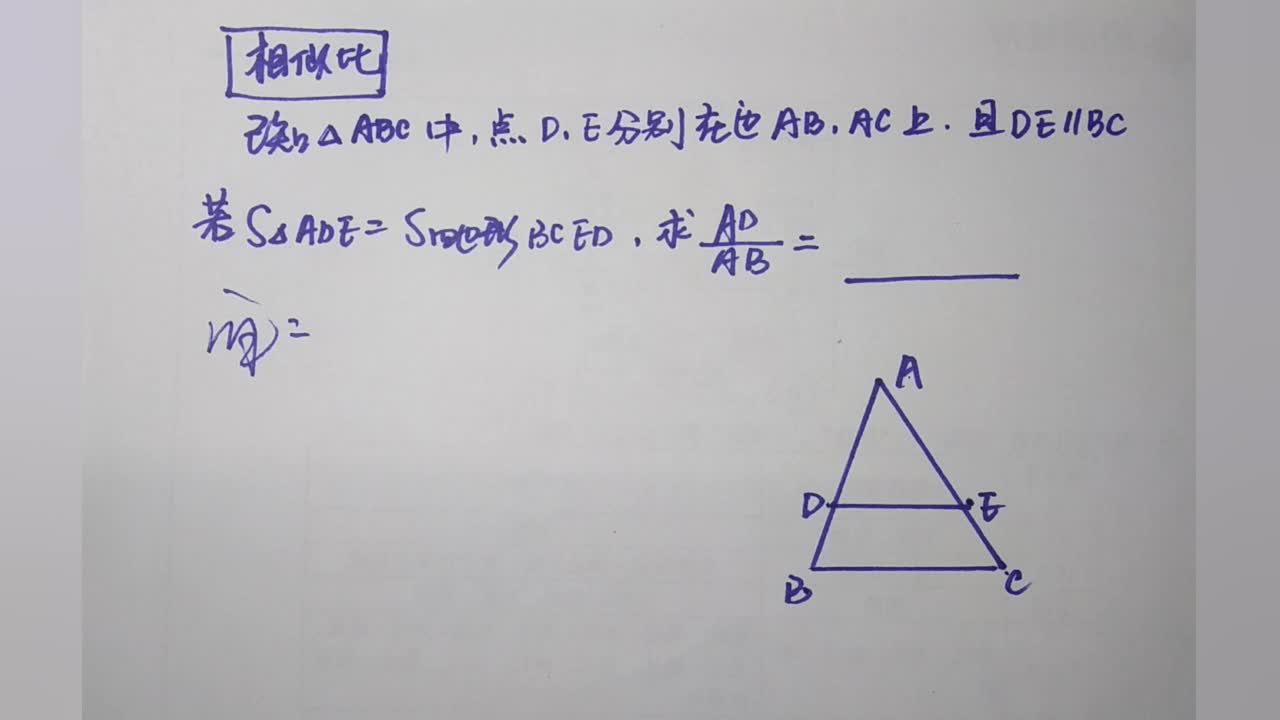 相似比
已知△ABC中,点D、E分别在边AB,AC上.且DE∥BC
若S△ADE=S四边形BCED,求AD/AB=
解=
A
D
E
B
C